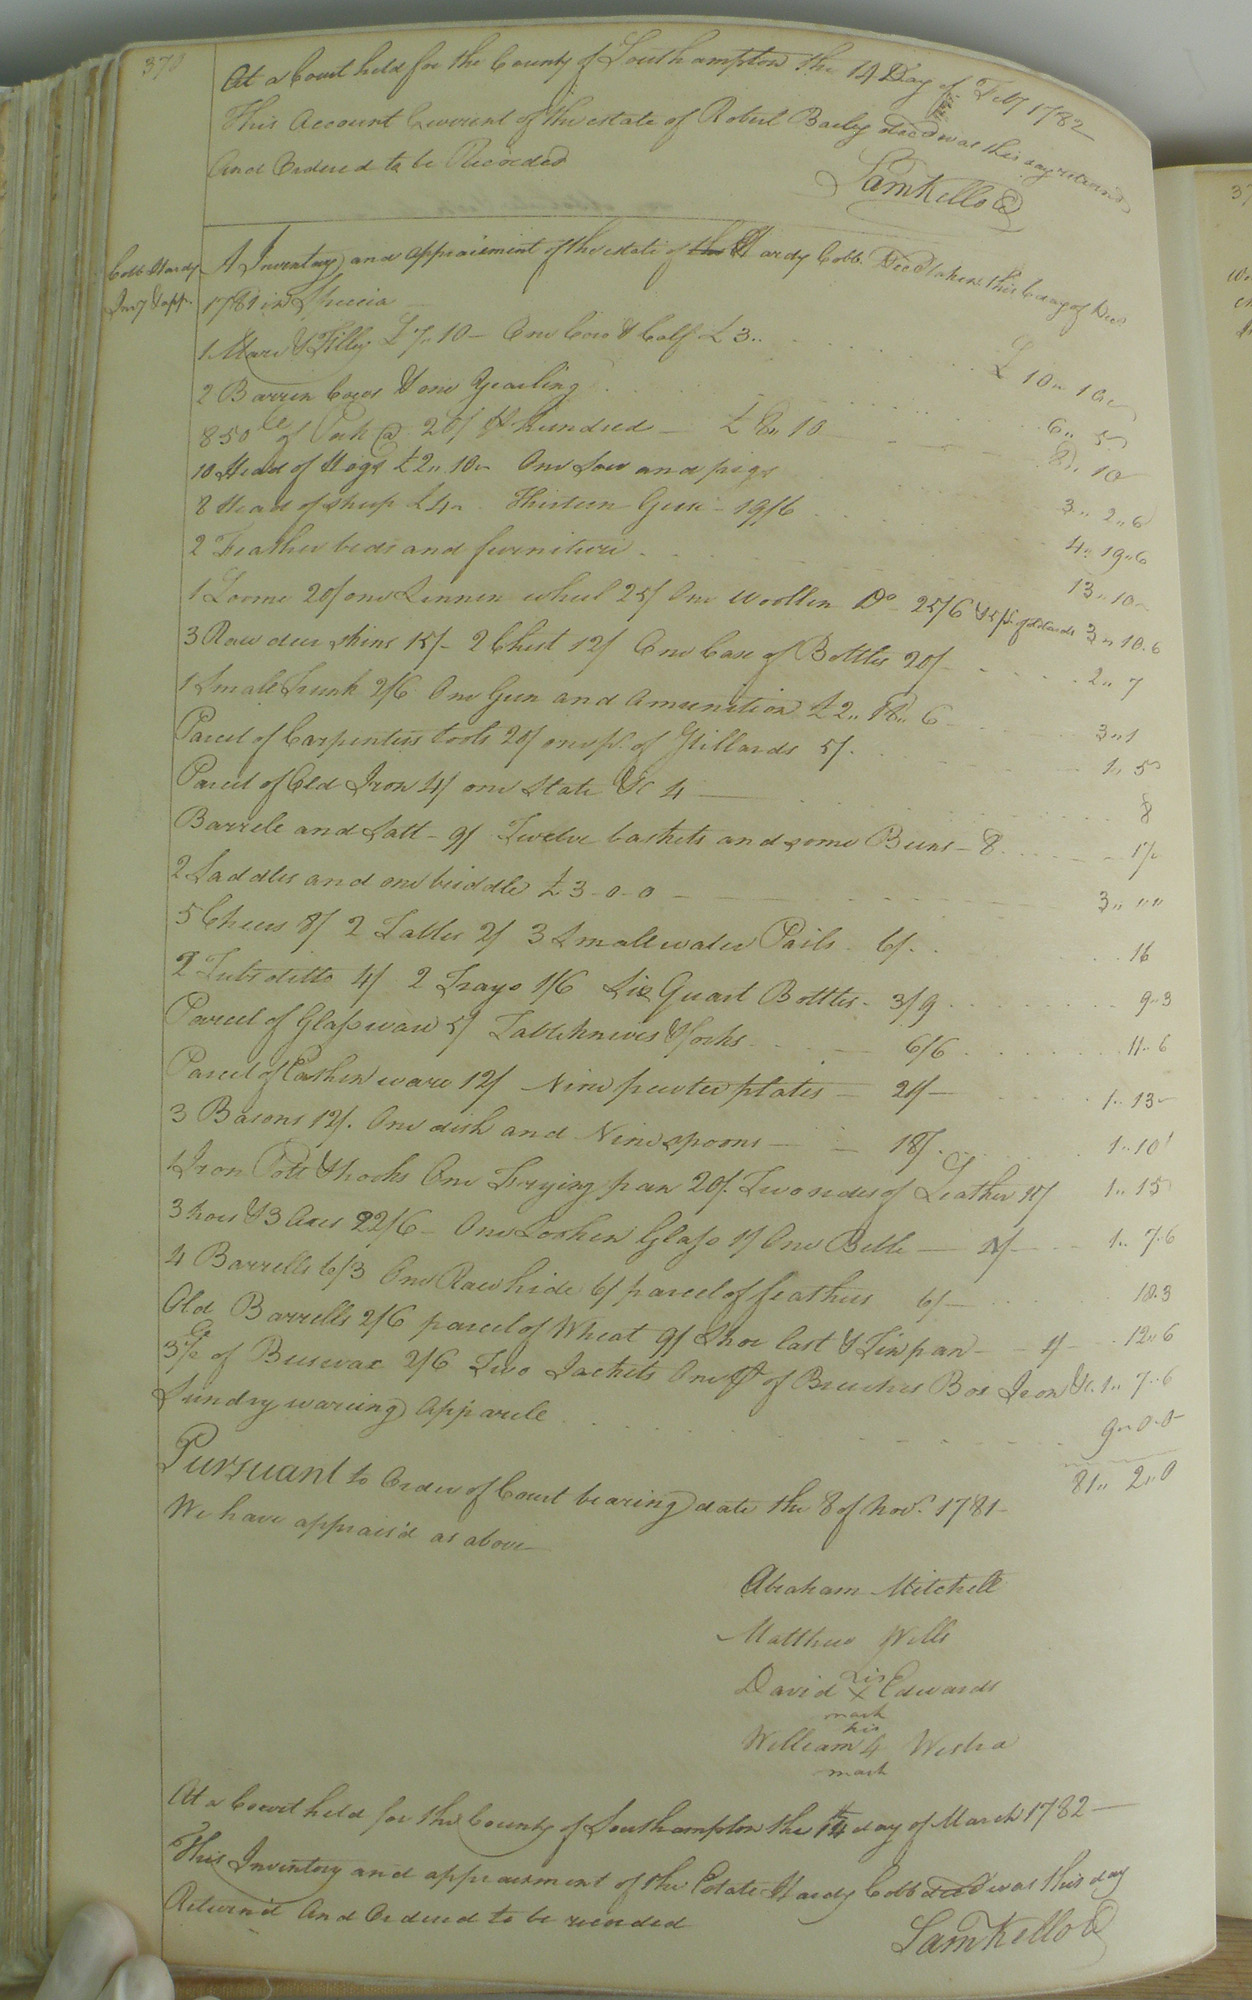 370
At a Court held for the County of Southampton the 14 Day of Feby 1782
This Account Current of the estate of Robert Bailey Decd was this day returned
And Ordered to be Recorded
Saml Kello C
Cobb Hardy
Invy & app.
A Inventory and appraisment of the estate of the Hardy Cobb Decd taken this day of Decr
1781 in Specia
1 Mare & Filley £7.. 10 - One Cow & Calf £3.. £ 10.. 10
2 Barren Cows & one Yearling 6.. 5
850 lb of Pork @ 20/ P hundred - £8.. 10 8.. 10
10 Head of Hogs £2.. 10.. One Sow and pigs 3.. 2.. 6
8 Head of sheep £4.. Thirteen Geese - 19/6 4.. 19.. 6
2 Feather beds and furniture 13.. 10
1 Loome 20/ one Linnen wheel 25/ One Woollen Do - 25/6 & pr of Cards 3.. 10.6
3 Raw deer skins 15/- 2 Chest 12/ One Case of Bottles 20/- 2.. 7
1 Smale Trunk 2/6 One Gun and Amunition £2.. 18.. 6 3..1
Parcel of Carpenters tools 20/ one pr. of Stillards 5/. 1.. 5
Parcel of Old Iron 4/ one State &c 4 8
Barrele and Salt - 9/ Twelve baskets and some Beens - 8 17
2 Saddles and one briddle £3-0-0 3.. ....
5 Cheirs 8/ 2 Tables 2/ 3 Small water Pails 6/. 16
2 Tubs ditto 4/ 2 Trays 1/6 Six Quart Bottles - 3/9 9..3
Parcel of Glass ware 5/ Table knives & forks 6/6 11..6
Parcel of Earthen ware 12/ Nine pewter plates - 20/- 1.. 13
3 Basons 12/. One dish and Nine spoons - 18/. 1..10
1 Iron Pott & hooks One Frying pan 20/. Two sides of Leather 15/ 1.. 15
3 hoes & 3 Axes 22/6 - One Looken Glass 1/ One Bell 1.. 7.6
4 Barrells 6/3 One Raw hide 6/ parcel of feathers 6/- 18.3
Old Barrells 2/6 parcel of Wheat 9/ Shoe last & Tin pan - 1/- 12..6
3 lb of Beeswax 2/6 Two Jackets One pr of Breeches Box Iron &c. 1.. 7..6
Sundry wareing Apparele 9..0.0
81.. 2..0
Pursuant to Order of Court bearing date the 8 of Novr. 1781
We have apprais'd as above
Abraham Mitchell
Matthew Wells
David his X Edwards
mark
his
William 4 Westra
mark
At a Court held for the County of Southampton the 14th day of March 1782
This Inventory and appraisment of the Estate Hardy Cobb decd was this day
Return'd And Ordered to be recorded
Saml Kello C